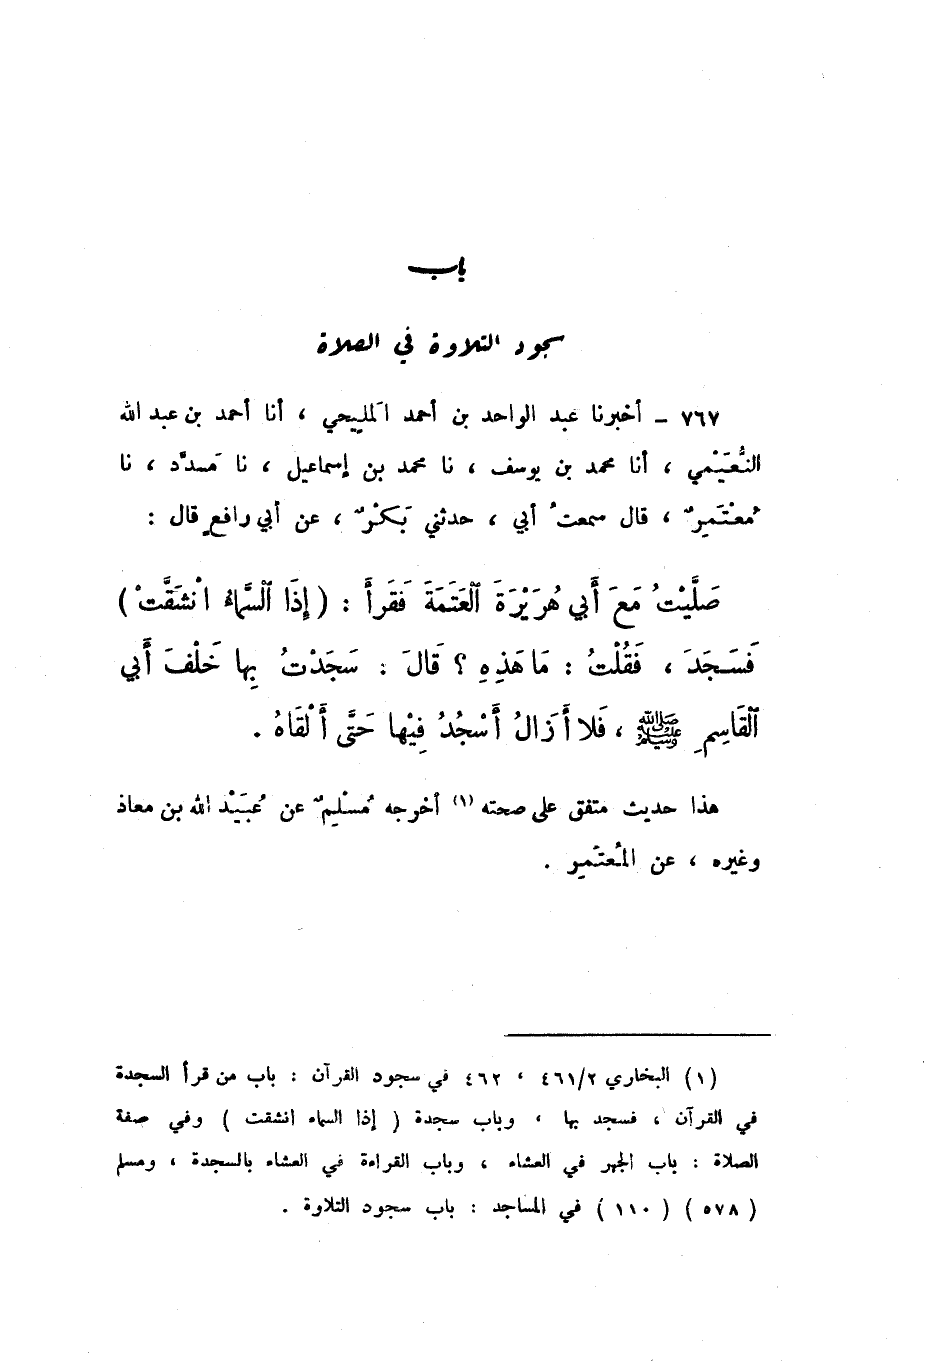 باب
سجود التلاوة في الصلاة
٧٦٧ – أخبرنا عبد الواحد بن أحمد المليحي ، أنا أحمد بن عبد الله
النُّعَيْمي ، أنا محمد بن يوسف ، نا محمد بن إسماعيل ، نا مَسدَّد ، نا
مُعْتَمِرٌ ، قال سمعتُ أبي ، حدثني بَكْرٌ ، عن أبي رافعٍ قال :
صَلَّيْتُ مَعَ أَبِي هُرَيْرَةَ ٱلْعَتَمَةَ فَقَرَأَ : ( إِذَا ٱلسَّمَاءُ ٱنْشَقَّتْ )
فَسَجَدَ ، فَقُلْتُ : مَا هَذِهِ ؟ قَالَ : سَجَدْتُ بِهَا خَلْفَ أَبِي
ٱلْقَاسِمِ ﷺ ، فَلا أَزَالُ أَسْجُدُ فِيْهَا حَتَّى أَلْقَاهُ .
هذا حديث متفق على صحته (١) أخرجه مُسْلِمٌ عن عُبَيْد الله بن معاذ
وغيره ، عن المُعتَمِر .
(١) البخاري ٤٦١/٢ ، ٤٦٢ في سجود القرآن : باب من قرأ السجدة
في القرآن ، فسجد بها ، وباب سجدة ( إذا السماء انشقت ) وفي صفة
الصلاة : باب الجهر في العشاء ، وباب القراءة في العشاء بالسجدة ، ومسلم
( ٥٧٨ ) ( ١١٠ ) في المساجد : باب سجود التلاوة .